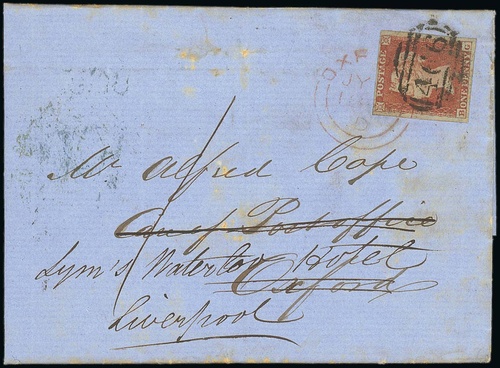 POSTAGE
ONE PENNY
OXF
JY
Mr Alfred Cope
Care of Post office
Lynn's Waterloo Hotel
Oxford
Liverpool